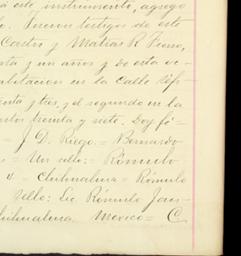 este instrumento, agrego
Fueron testigos de este
Castro y Matias R.
y un años y de esta ve-
habitacion en la Calle
y tres, y el segundo en la
treinta y siete. Doy fé =
= J. D. Riego. = Bernardo
= Un sello: = Rómulo
Chihuahua = Rómulo
Sello: Lic. Rómulo Jau-
Chihuahua. Mexico = C.